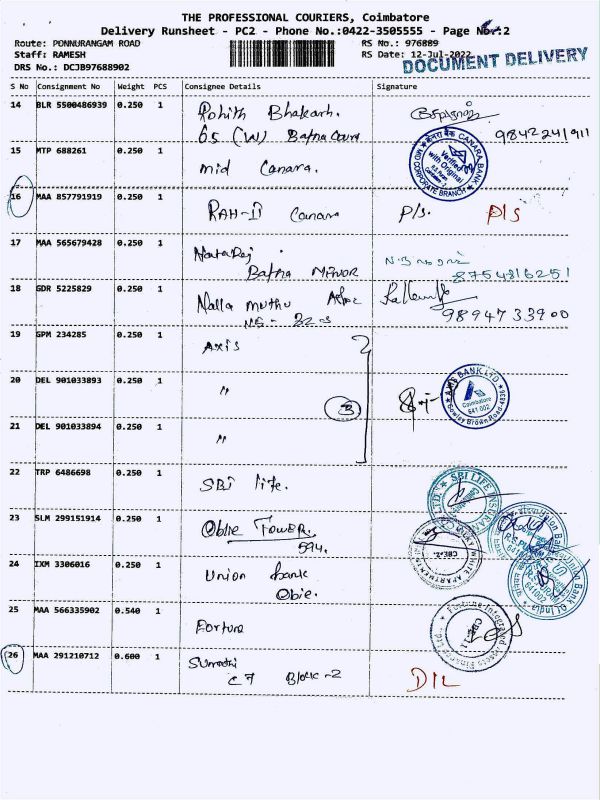 THE PROFESSIONAL COURIERS, Coimbatore
Delivery Runsheet - PC2 - Phone No.:0422-3505555 - Page No.:2
Route: PONNURANGAM ROAD
RS No.: 976889
Staff: RAMESH
RS Date: 12-Jul-2022
DRS No.: DCJB97688902
DOCUMENT DELIVERY
S No Consignment No Weight PCS Consignee Details Signature
14 BLR 5500486939 0.250 1
65 (W) Bafna Court
9842241911
15 MTP 688261 0.250 1 mid Canara.
CANARA BANK
MID CORPORATE BRANCH
Verified with Original
16 MAA 857791919 0.250 1 RAH-II Canara P/s. P/s
17 MAA 565679428 0.250 1 Nataraj
Bafna Manor
8754816251
18 GDR 5225829 0.250 1 Nalla muthu
9894733900
19 GPM 234285 0.250 1 Axis
20 DEL 901033893 0.250 1 〃
3
AXIS BANK LTD
Coimbatore
641 002
21 DEL 901033894 0.250 1 〃
22 TRP 6486698 0.250 1 SBI life.
SBI LIFE INSURAN
23 SLM 299151914 0.250 1 Oblie Tower.
594.
24 IXM 3306016 0.250 1 Union bank
Obie.
APARTMENTS
CBE-2.
Union Bank Of India
641002
25 MAA 566335902 0.540 1 Fortune
26 MAA 291210712 0.600 1 Sumathi
C7 Block-2
D/L